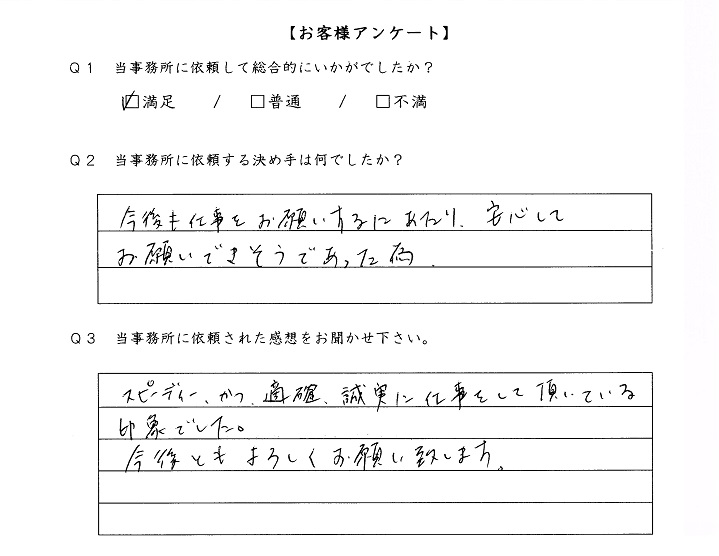 【お客様アンケート】
Q1 当事務所に依頼して総合的にいかがでしたか?
☑満足 / □普通 / □不満
Q2 当事務所に依頼する決め手は何でしたか?
今後も仕事をお願いするにあたり、安心して
お願いできそうであった為.
Q3 当事務所に依頼された感想をお聞かせ下さい。
スピーディー、かつ、適確、誠実に仕事をして頂いている
印象でした。
今後ともよろしくお願い致します。